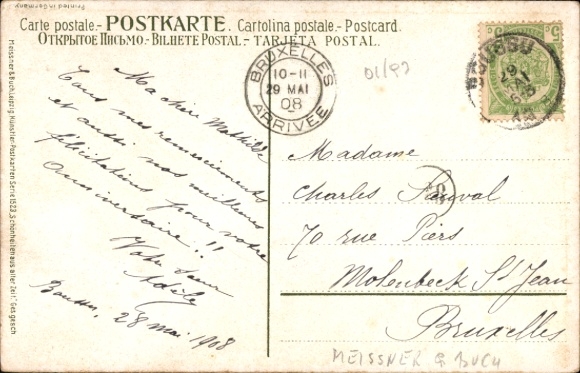 Carte postale.- POSTKARTE. Cartolina postale.- Postcard.
ОТКРЫТОЕ ПИСЬМО.- BILHETE POSTAL.- TARJETA POSTAL.
Printed in Germany
Meissner & Buch, Leipzig, Künstler-Postkarten Serie 1522, „Schönheiten aus alter Zeit" Ges. gesch.
BRUXELLES
10-11
29 MAI
08
ARRIVÉE
01/93
5 5
Ma chère Mathilde
Tous mes remerciements
et aussi nos meilleures
félicitations pour votre
anniversaire!!
Votre
Adèle
28 mai 1908
Madame
Charles Sauval
70 rue Piers
Molenbeek St Jean
Bruxelles
MEISSNER & BUCH